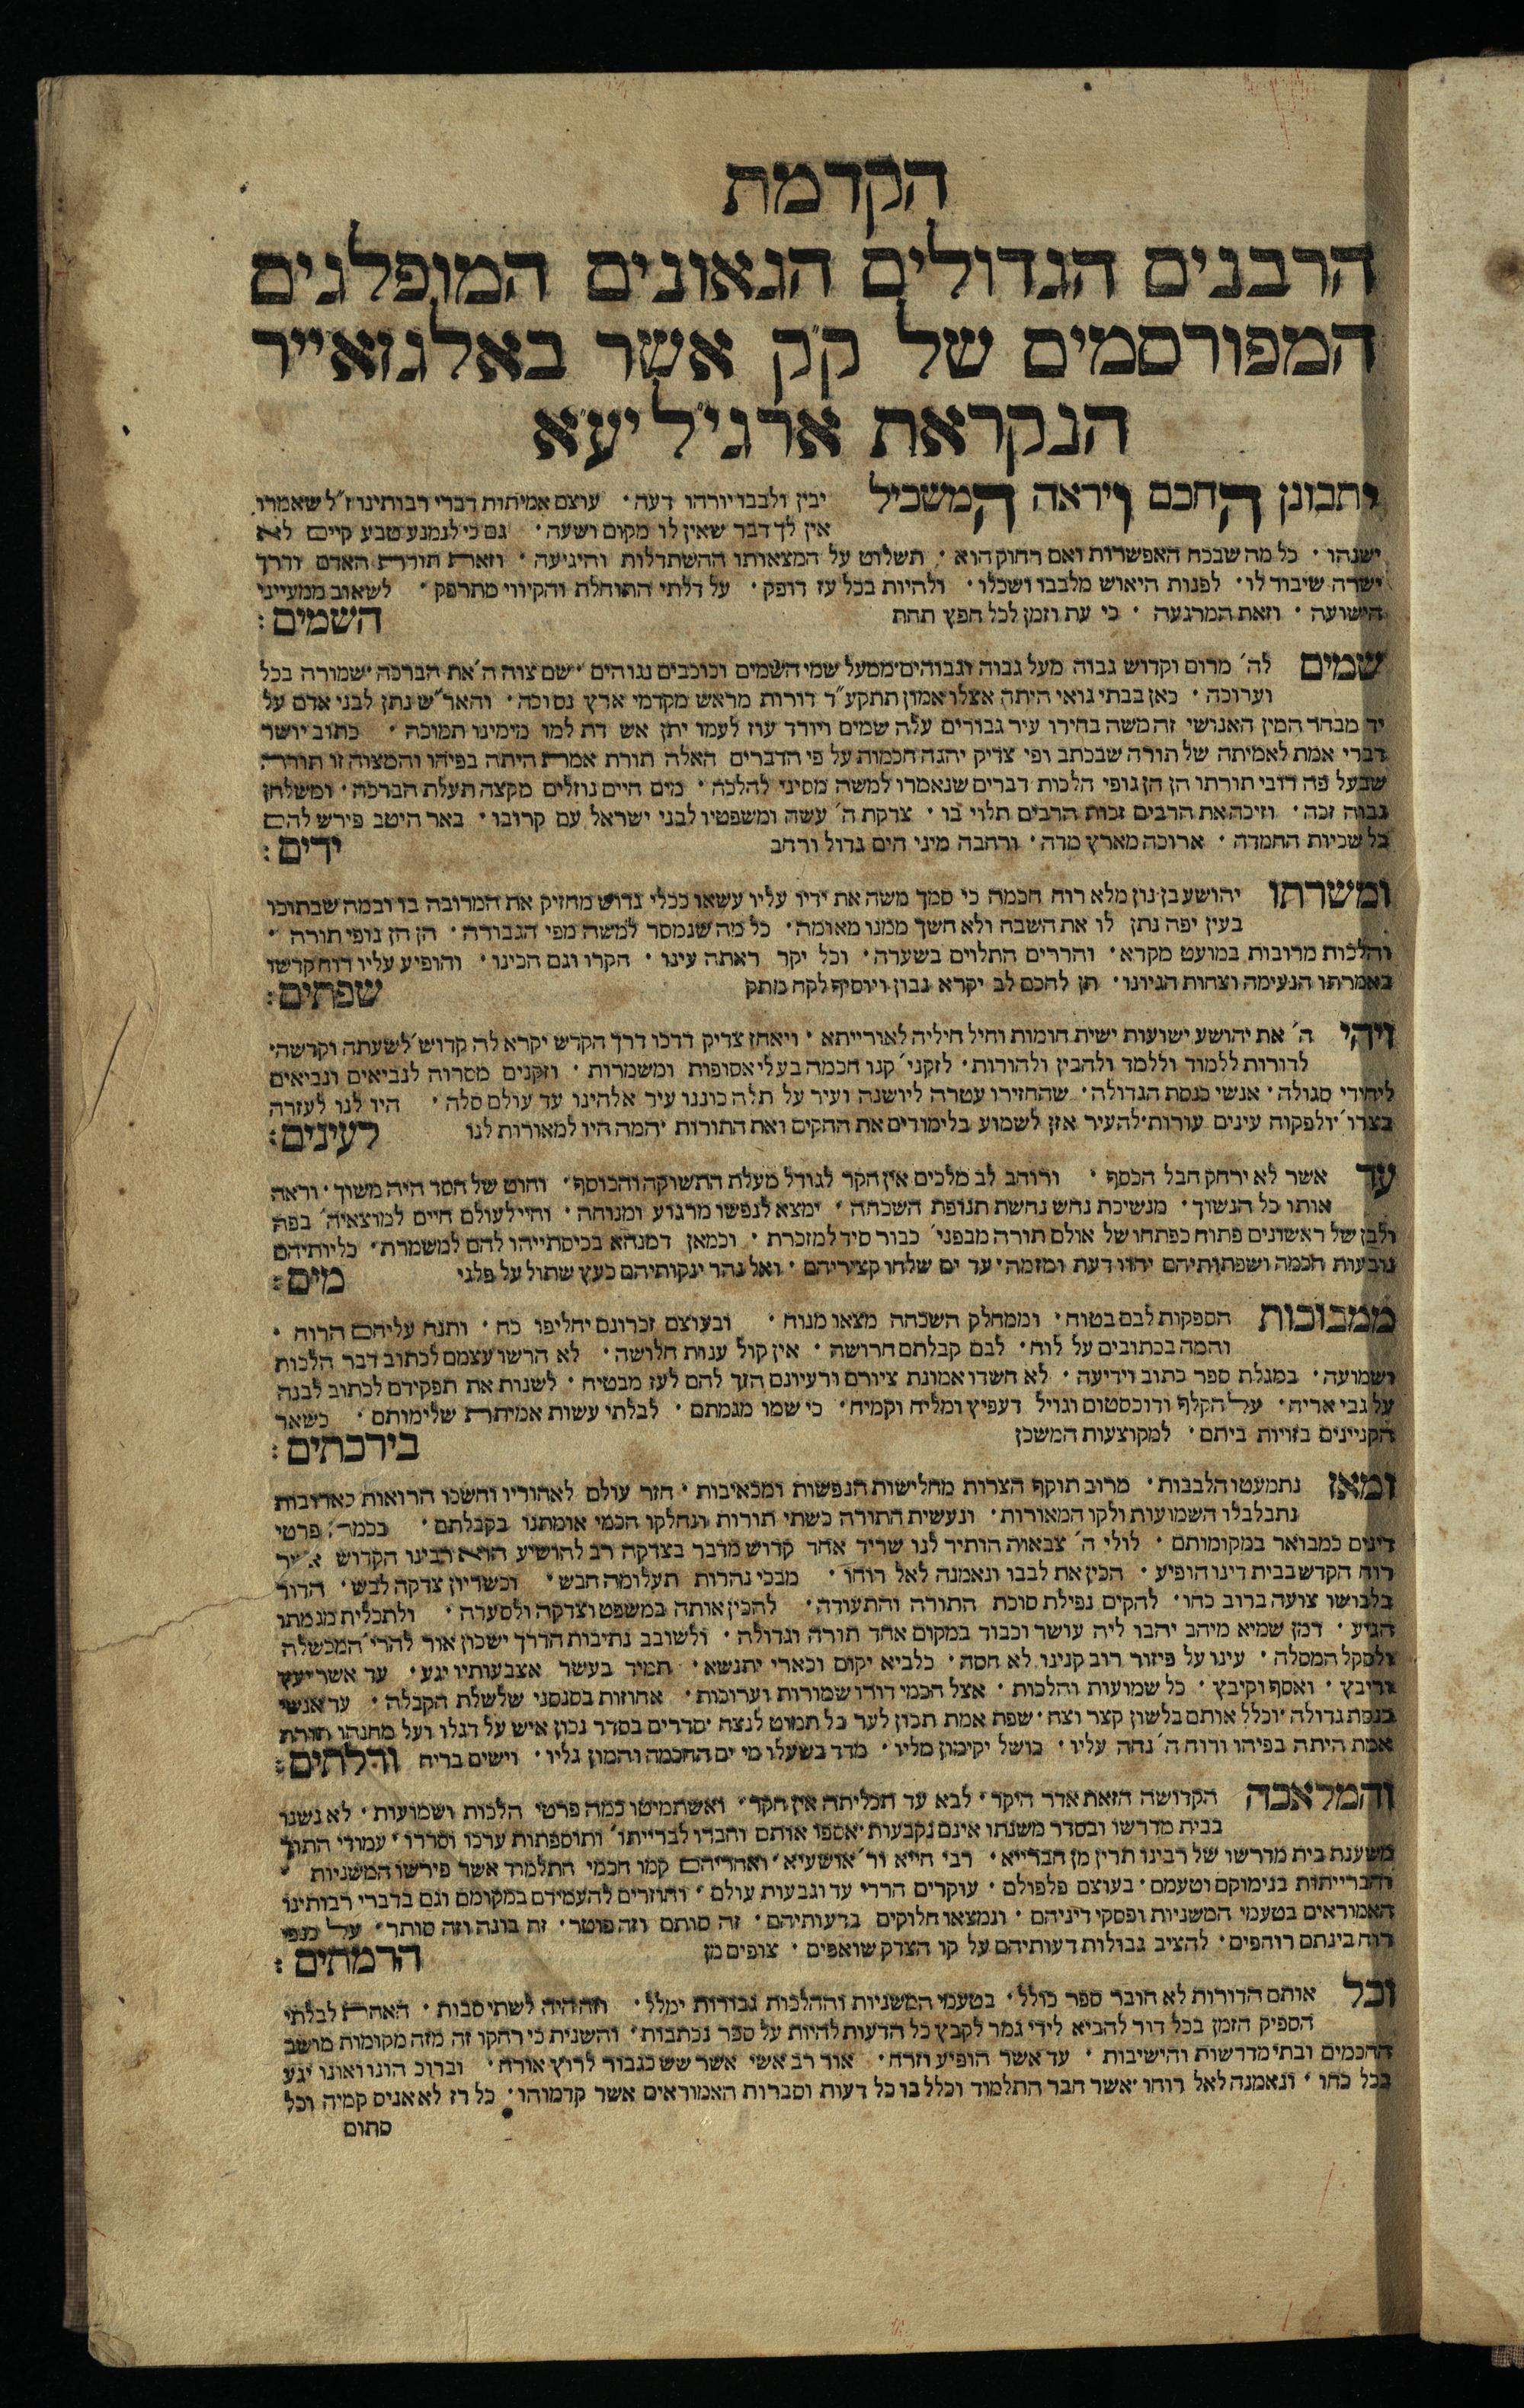 הקדמת
הרבנים הגדולים הגאונים המופלגים
המפורסמים של ק"ק אשר באלגזאייר
הנקראת ארגי"ל יע"א
יתבונן החכם ויראה המשכיל יבין ולבבו יורהו דעה · עוצם אמיתות דברי רבותינו ז"ל שאמרו
אין לך דבר שאין לו מקום ושעה · גם כי לנמנע טבע קיים לא
ישנהו · כל מה שבכח האפשרות ואם רחוק הוא · תשלוט על המצאותו ההשתדלות והיגיעה · וזאת תורת האדם ודרך
ישרה שיבור לו · לפנות היאוש מלבבו ושכלו · ולהיות בכל עז דופק · על דלתי התוחלת והקיווי מתרפק · לשאוב ממעייני
הישועה · וזאת המרגעה · כי עת וזמן לכל חפץ תחת השמים :
שמים לה' מרום וקדוש גבוה מעל גבוה וגבוהים מטעל שמי השמים וכוכבים נגוהים · שם צוה ה' את הברכה שמורה בכל
וערוכה · כאן בבתי גואי היתה אצלו אמון תתקע"ד דורות מראש מקדמי ארץ נסוכה · והאר"ש נתן לבני אדם על
יד מבחר המין האנושי זה משה בחירו עיר גבורים עלה שמים ויורד עוז לעמו יתן אש דת למו מימינו תמוכה · כתוב יושר
דברי אמת לאמיתה של תורה שבכתב ופי צדיק יהגה חכמות על פי הדברים האלה תורת אמת היתה בפיהו והמצוה זו תורה
שבעל פה דובי תורתו הן הן גופי הלכות דברים שנאמרו למשה מסיני להלכה · מים חיים נוזלים מקצה תעלת הברכה · ומשלחן
גבוה זכה · וזיכה את הרבים זכות הרבים תלוי בו · צדקת ה' עשה ומשפטיו לבני ישראל עם קרובו · באר היטב פירש להם
כל שכיות החמדה · ארוכה מארץ מדה · ורחבה מיני הים גדול ורחב ידים :
ומשרתו יהושע בן נון מלא רוח חכמה כי סמך משה את ידיו עליו עשאו ככלי גדוש מחזיק את המרובה בו ובמה שבתוכו
בעין יפה נתן לו את השבה ולא חשך ממנו מאומה · כל מה שנמסר למשה מפי הגבורה · הן הן גופי תורה ·
והלכות מרובות במועט מקרא · והררים התלוים בשערה · וכל יקר ראתה עינו · חקרו וגם הכינו · והופיע עליו רוח קדשו
באמרתו הנעימה וצחות הגיונו · תן לחכם לב יקרא נבון ויוסיף לקח מתק שפתים :
ויהי ה' את יהושע ישועות ישית חומות וחיל חיליה לאורייתא · ויאחז צדיק דרכו דרך הקדש יקרא לה קדוש לשעתה וקדשה
לדורות ללמוד וללמד ולהבין ולהורות · לזקני' קנו חכמה בעלי אסופות ומשמרות · וזקנים מסרוה לנביאים ונביאים
ליחידי סגולה · אנשי כנסת הגדולה · שהחזירו עטרה ליושנה ועיר על תלה כוננו עיר אלהינו עד עולם סלה · היו לנו לעזרה
בצרו' ולפקוח עינים עורות להעיר אזן לשמוע בלימודים את החקים ואת התורות המה היו למאורות לנו לעינים :
עד אשר לא ירחק חבל הכסף · ורוחב לב מלכים אין חקר לגודל מעלת התשוקה והכוסף · וחוט של חסד היה משוך · וראה
אותו כל הנשוך · מנשיכת נחש נחשת תנופת השכחה · ימצא לנפשו מרגוע ומנוחה · וחיי עולם חיים למוצאיה' בפה
ולבן של ראשונים פתוח כפתחו של אולם תורה מבפני' כבור סיד למזכרת · וכמאן דמנחא בכיסתייהו להם למשמרת · כליותיהם
נובעות חכמה ושפתותיהם יהדו דעת ומזמה עד ים שלחו קציריהם · ואל נהר ינקותיהם כעץ שתול על פלגי מים :
ממבוכות הספקות לבם בטוח · וממחלק השכחה מצאו מנוח · ובעוצם זכרונם יחליפו כח · ותנח עליהם הרוח ·
והמה בכתובים על לוח · לבם קבלתם חרושה · אין קול ענות חלושה · לא הרשו עצמם לכתוב דבר הלכות
ושמועה · במגלת ספר כתוב וידיעה · לא חשדו אמונת ציורם ורעיונם הזך להם לעז מבטיח · לשנות את תפקידם לכתוב לבנה
על גבי אריח · על הקלף ודוכסטוס וגויל דעפיץ ומליח וקמיח · כי שמו מגמתם · לבלתי עשות אמיתת שלימותם · כשאר
הקניינים בזויות ביתם · למקוצעות המשכן בירכתים :
ומאז נתמעטו הלבבות · מרוב תוקף הצרות מחלישות הנפשות ומכאיבות · חזר עולם לאחוריו וחשכו הרואות כארובות
נתבלבלו השמועות ולקו המאורות · ונעשית התורה כשתי תורות ונחלקו חכמי אומתנו בקבלתם · בכמה פרטי
דינים כמבואר במקומותם · לולי ה' צבאות הותיר לנו שריד אחד קדוש מדבר בצדקה רב להושיע הוא רבינו הקדוש אשר
רוח הקדש בבית דינו הופיע · הכין את לבבו ונאמנה לאל רוחו · מבכי נהרות תעלומה חבש · וכשריון צדקה לבש · הדור
בלבושו צועה ברוב כחו · להקים נפילת סוכת התורה והתעודה · להכין אותה במשפט וצדקה ולסערה · ולתכלית מגמתו
הגיע · דמן שמיא מיהב יהבו ליה עושר וכבוד במקום אחד תורה וגדולה · ולשובב נתיבות הדרך ישכון אור להרי' המכשלה
ולסקל המסלה · עינו על פיזור רוב קנינו לא חסה · כלביא יקום וכארי יתנשא · תמיד בעשר אצבעותיו יגע · עד אשר יעץ
וריבץ · ואסף וקיבץ · כל שמועות והלכות · אצל חכמי דורו שמורות וערוכות · אחוזות בסנסני שלשלת הקבלה · עד אנשי
כנסת גדולה וכלל אותם בלשון קצר וצח · שפת אמת תכון לעד בל תמוט לנצח סדרים בסדר נכון איש על דגלו ועל מחנהו תורת
אמת היתה בפיהו ורוח ה' נחה עליו · כושל יקימון מליו · מדד בשעלו מי ים החכמה והמון גליו · וישים בריח ודלתים :
והמלאכה הקדושה הזאת אדר היקר · לבא עד תכליתה אין חקר · ואשתמיטו כמה פרטי הלכות ושמועות · לא נשנו
בבית מדרשו ובסדר משנתו אינם נקבעות אספו אותם וחברו לברייתו' ותוספתות ערכו וסדרו · עמודי התוך
משענת בית מדרשו של רבינו תרין מן חברייא · רבי חייא ור' אושעיא · ואחריהם קמו חכמי התלמוד אשר פירשו המשניות ·
והברייתות בנימוקם וטעמם · בעוצם פלפולם · עוקרים הררי עד וגבעות עולם · וחוזרים להעמידם במקומם וגם בדברי רבותינו
האמוראים בטעמי המשניות ופסקי דיניהם · ונמצאו חלוקים בדעותיהם · זה סותם וזה פוטר · זה בונה וזה סותר · על כנפי
רוח בינתם רוחפים · להציב גבולות דעותיהם על קו הצדק שואפים · צופים מן הרמתים :
וכל אותם הדורות לא חובר ספר כולל · בטעמי המשניות וההלכות גבורות ימלל · וזה היה לשתי סבות · האחת לבלתי
הספיק הזמן בכל דור להביא לידי גמר לקבץ כל הדעות להיות על ספר נכתבות · והשנית כי רחקו זה מזה מקומות מושב
החכמים ובתי מדרשות והישיבות · עד אשר הופיע וזרח · אור רב אשי אשר שש כגבור לרוץ אורח · וברוב הונו ואונו יגע
בכל כחו · ונאמנה לאל רוחו אשר חבר התלמוד וכלל בו כל דעות וסברות האמוראים אשר קדמוהו · כל רז לא אניס קמיה וכל
סתום